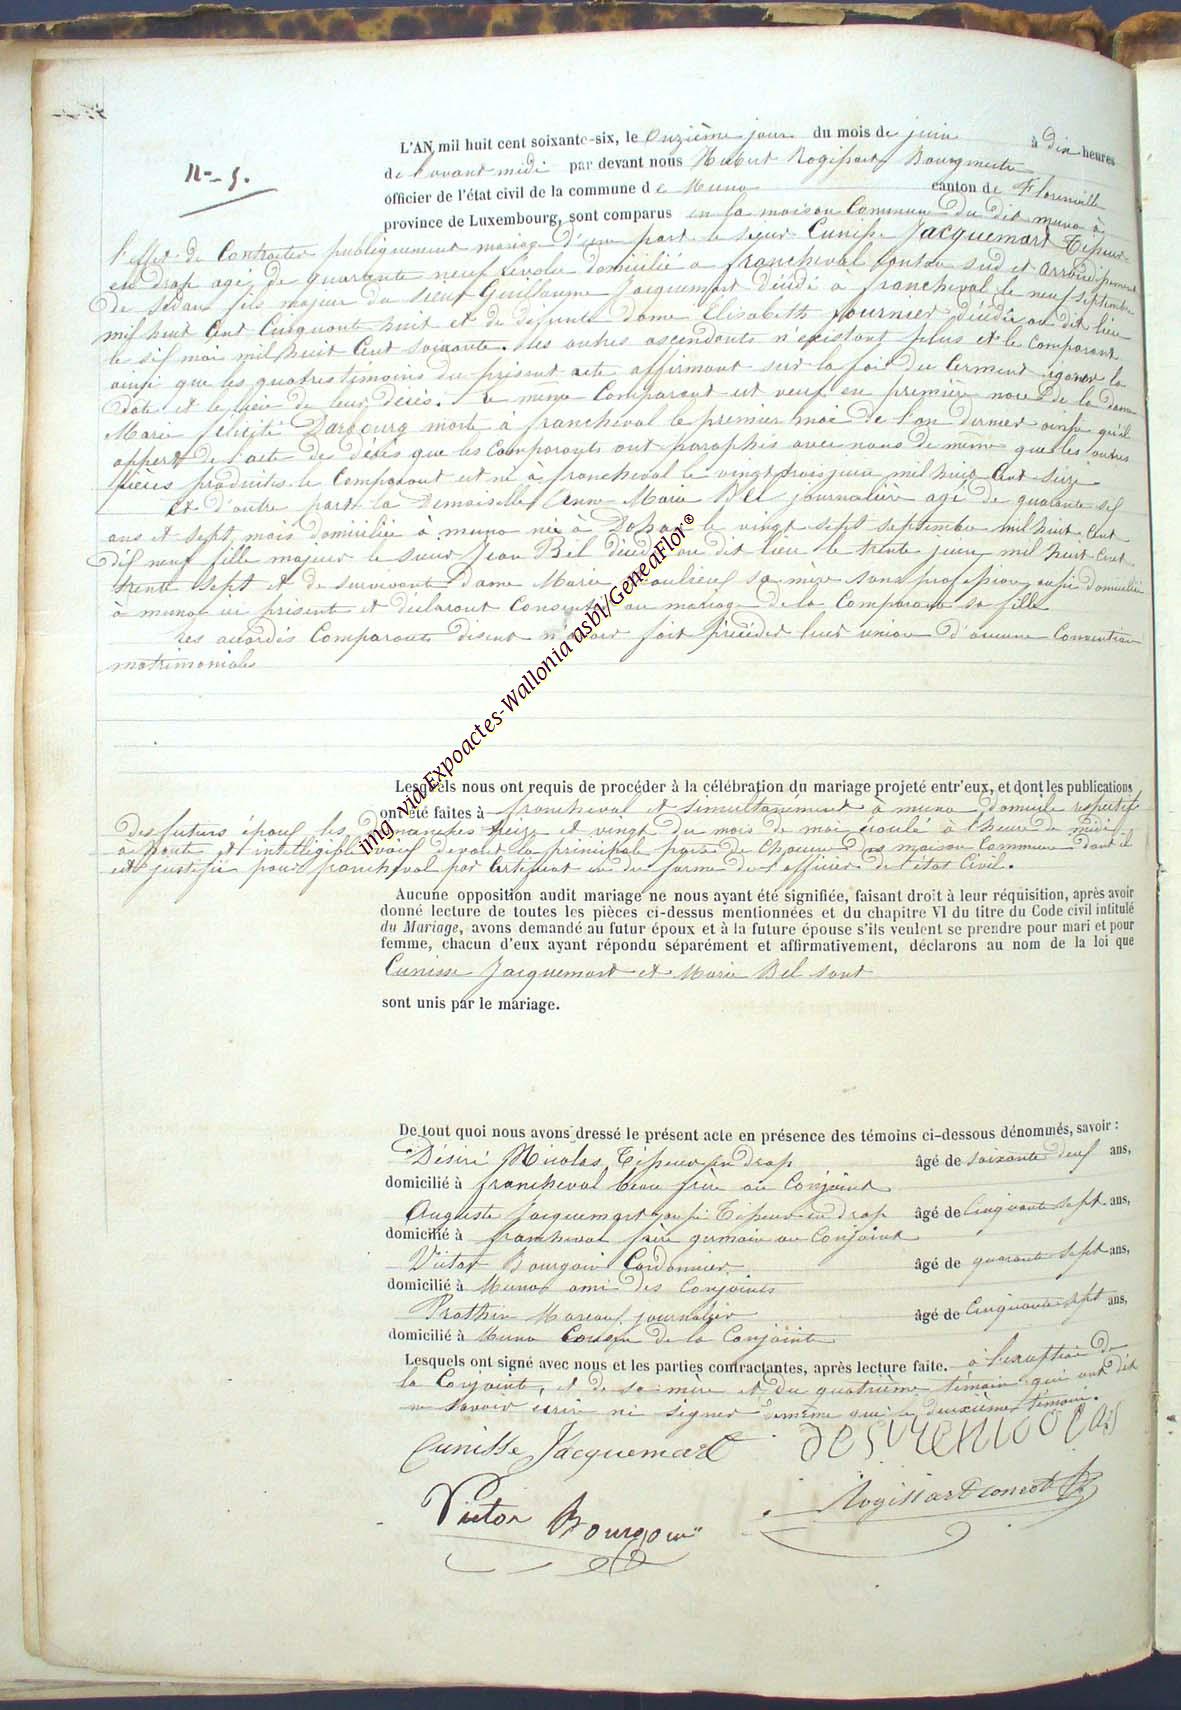 N° 5.
L'AN mil huit cent soixante-six, le onzième jour du mois de juin à dix heures
de l'avant midi par devant nous Hubert Rogissart Bourgmestre
officier de l'état civil de la commune de Muno canton de Florenville
province de Luxembourg, sont comparus en la maison Commune du dit muno à
l'effet de Contracter publiquement mariage d'une part le sieur Cunisse Jacquemart Tisseur
en drap agé de quarante neuf révolu domicilié a francheval Canton sud et arrondissement
de Sedan fils majeur du sieur Guillaume Jacquemart décédé à francheval le neuf septembre
mil huit Cent Cinquante huit et de defunte dame Elisabeth fournier décédée au dit lieu
le six mai mil huit Cent soixante. Les autres ascendants n'existant plus et le Comparant
ainsi que les quatres témoins du présent acte affirmant sur la foi du serment ignorer la
date et le lieu de leur décès. Le même Comparant est veuf en première noce de la dame
Marie félicité morte à francheval le premier mai de l'an dernier ainsi qu'il
appert de l'acte de décès que les Comparants ont paraphés avec nous de même que les autres
pièces produites. le Comparant est né à francheval le vingt trois juin mil huit Cent seize
Et d'autre part la Demoiselle Anne Marie Bel journalière agé de quarante six
ans et sept mois domiciliée à muno née à Dohan le vingt sept septembre mil huit Cent
dix neuf fille majeur de sieur Jean Bel décédé au dit lieu le trente juin mil huit Cent
trente sept et de survivante Dame Marie sa mère sans profession aussi domiciliée
à muno ici présent et déclarant Consentir au mariage de la Comparante sa fille
Les accordés Comparants disent n'avoir fait précéder leur union d'aucune Convention
matrimoniale
Lesquels nous ont requis de procéder à la célébration du mariage projeté entr'eux, et dont les publications
ont été faites à francheval et simultanément a muno domicile respectif
des futurs époux les dimanches treize et vingt du mois de mai écoulé à l'heure de midi
a haute et intelligible voix devant la principale porte de Chacune des maison Commune dont il
est justifié pour francheval par Certificat en due forme de l'officier de l'état Civil.
Aucune opposition audit mariage ne nous ayant été signifiée, faisant droit à leur réquisition, après avoir
donné lecture de toutes les pièces ci-dessus mentionnées et du chapitre VI du titre du Code civil intitulé
du Mariage, avons demandé au futur époux et à la future épouse s'ils veulent se prendre pour mari et pour
femme, chacun d'eux ayant répondu séparément et affirmativement, déclarons au nom de la loi que
Cunisse Jacquemart et Marie Bel sont
sont unis par le mariage.
De tout quoi nous avons dressé le présent acte en présence des témoins ci-dessous dénommés, savoir :
Désiré Nicolas Tisseur en drap âgé de soixante deux ans,
domicilié à francheval beau frère au Conjoint
Auguste Jacquemart aussi Tisseur en drap âgé de Cinquante sept ans,
domicilié à francheval frère germain au Conjoint
Victor Bourgoin Cordonnier âgé de quarante sept ans,
domicilié à Muno ami des Conjoints
journalier âgé de Cinquante sept ans,
domicilié à Muno Cousin de la Conjointe
Lesquels ont signé avec nous et les parties contractantes, après lecture faite. à l'exception de
la Conjointe, et de sa mère et du quatrième témoin qui ont dit
ne savoir écrire ni signer de même que le deuxième témoin.
Cunisse Jacquemart desire nicolas
Victor Bourgoin Rogissart
img via Expoactes-Wallonia asbl/GeneaFlor®